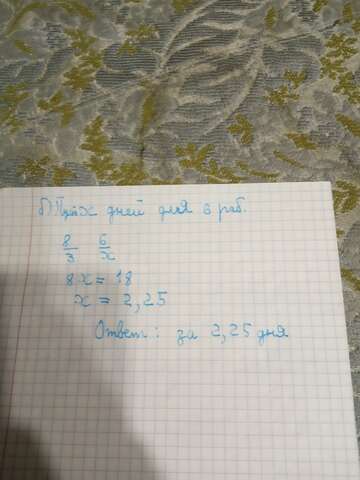 б) Пусть x дней для 6 раб.
8 6
3 x
8x = 18
x = 2,25
Ответ: за 2,25 дня